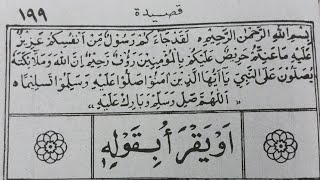 ١٩٩
قصيدة
بسم الله الرحمن الرحيم لقد جاءكم رسول من أنفسكم عزيز
عليه ما عنتم حريص عليكم بالمؤمنين رءوف رحيم إن الله وملائكته
يصلون على النبي يا أيها الذين آمنوا صلوا عليه وسلموا تسليما
اللهم صل وسلم وبارك عليه
أو يقرأ بقوله